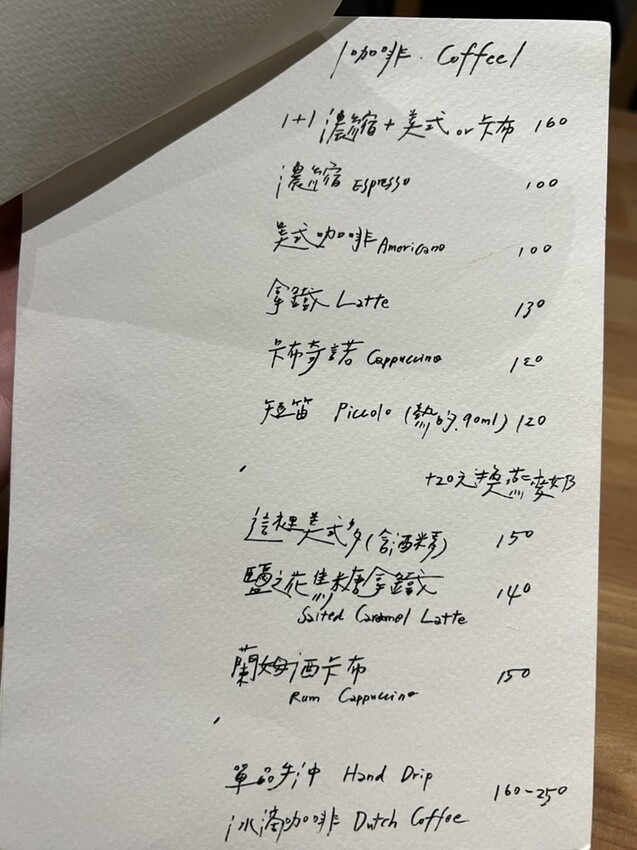 咖啡. Coffee
1+1 濃縮+美式 or 卡布 160
濃縮 Espresso 100
美式咖啡 Americano 100
拿鐵 Latte 130
卡布奇諾 Cappuccino 120
短笛 Piccolo (熱的.90ml) 120
+20元換燕麥奶
這裡美式多(含酒精) 150
鹽之花焦糖拿鐵 140
Salted Caramel Latte
蘭姆酒卡布 150
Rum Cappuccino
單品手沖 Hand Drip
160-250
冰滴咖啡 Dutch Coffee